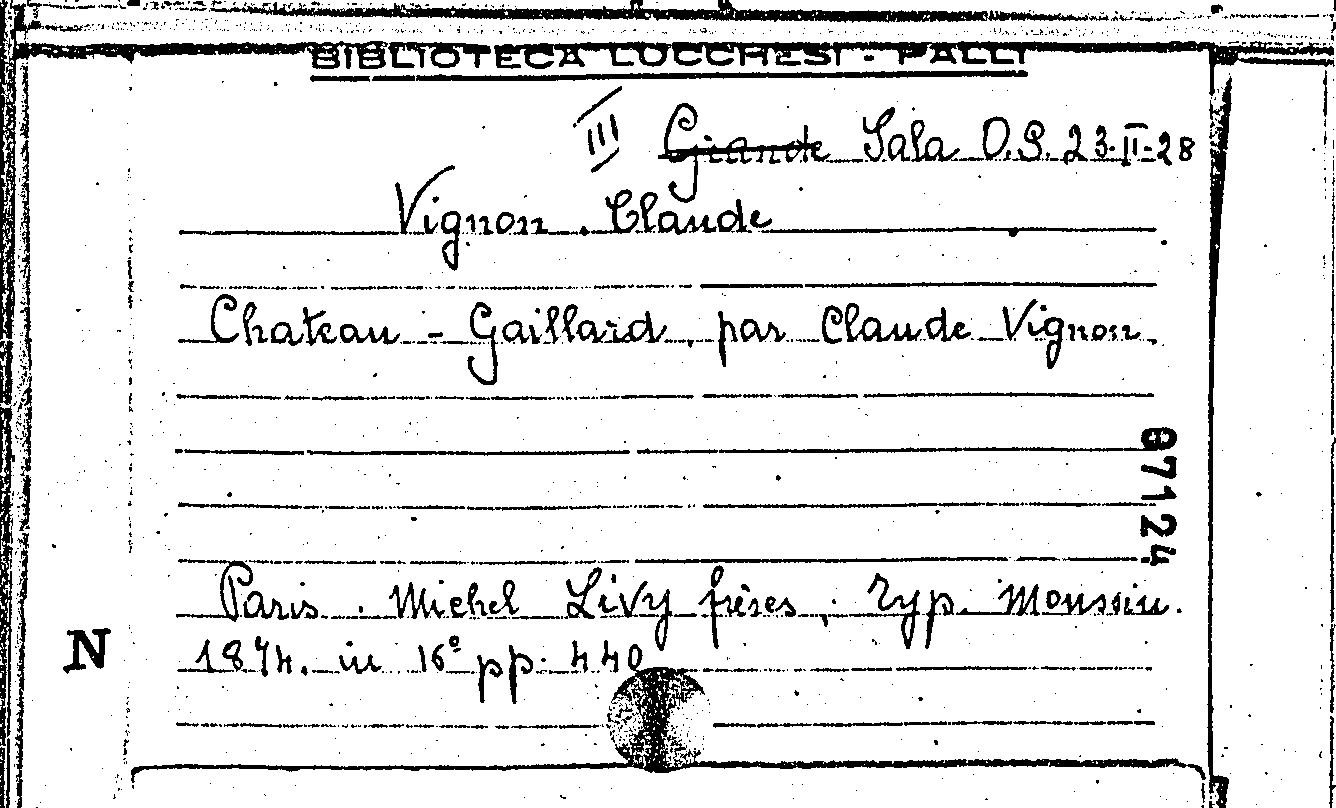 BIBLIOTECA LUCCHESI - PALLI
III Grande Sala O.S. 23-II-28
Vignon. Claude
Chateau - Gaillard, par Claude Vignon.
87124
Paris. Michel Livy frères, Typ. Moussin.
N
1874. in 16º pp. 440